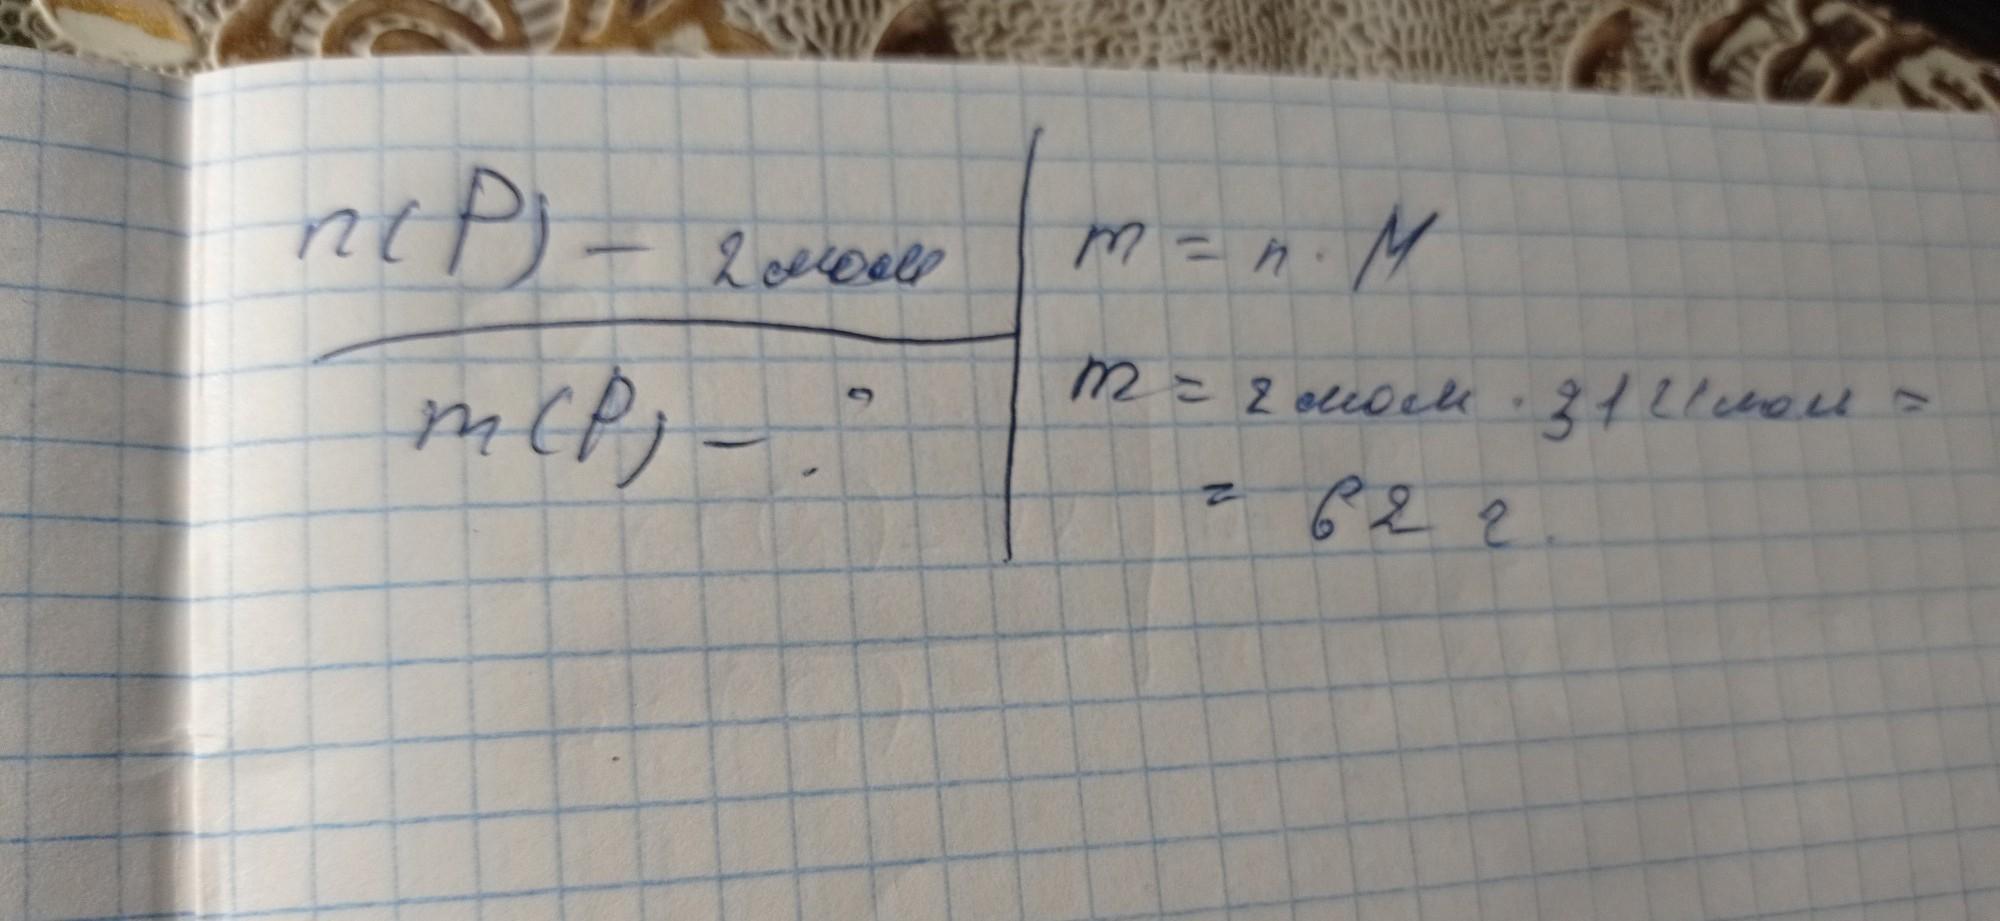 n(P) – 2 моль
m(P) – ?
m = n · M
m = 2 моль · 31 г/моль =
= 62 г.